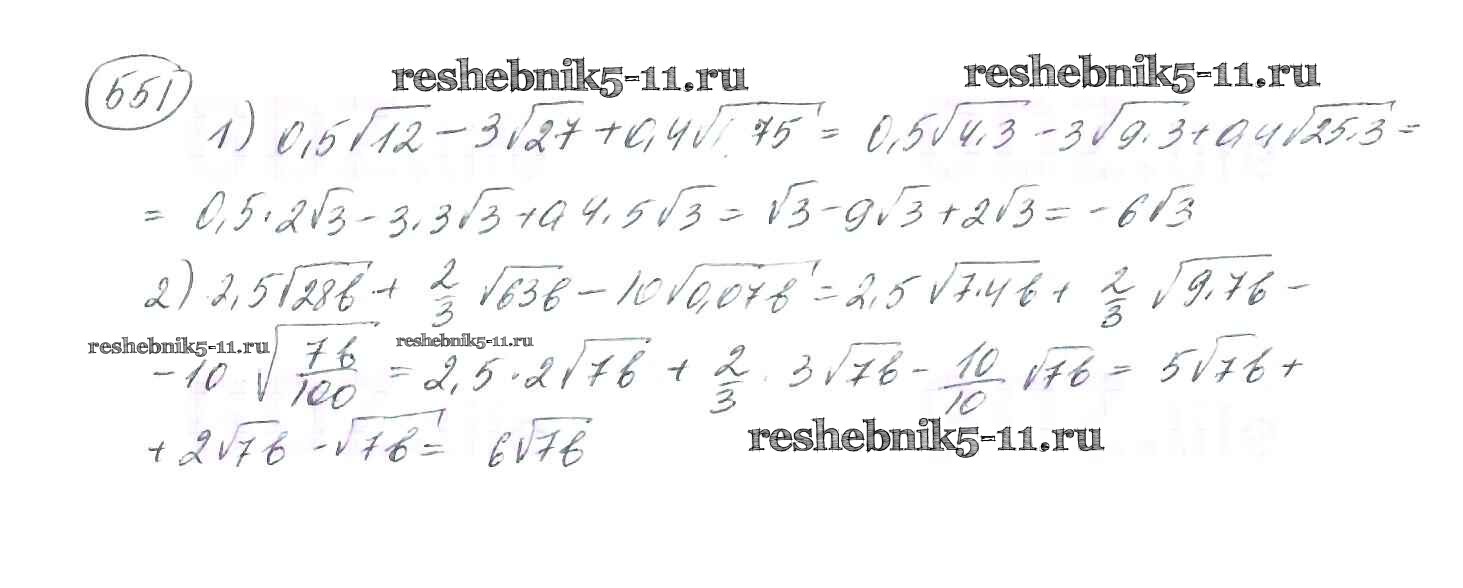 551
reshebnik5-11.ru reshebnik5-11.ru
1) 0,5√12 - 3√27 + 0,4√75 = 0,5√4·3 - 3√9·3 + 0,4√25·3 =
= 0,5·2√3 - 3·3√3 + 0,4·5√3 = √3 - 9√3 + 2√3 = -6√3
2) 2,5√28b + 2/3 √63b - 10√0,07b = 2,5√7·4b + 2/3 √9·7b -
reshebnik5-11.ru reshebnik5-11.ru
- 10 √7b/100 = 2,5·2√7b + 2/3 · 3√7b - 10/10 √7b = 5√7b +
+ 2√7b - √7b = 6√7b
reshebnik5-11.ru